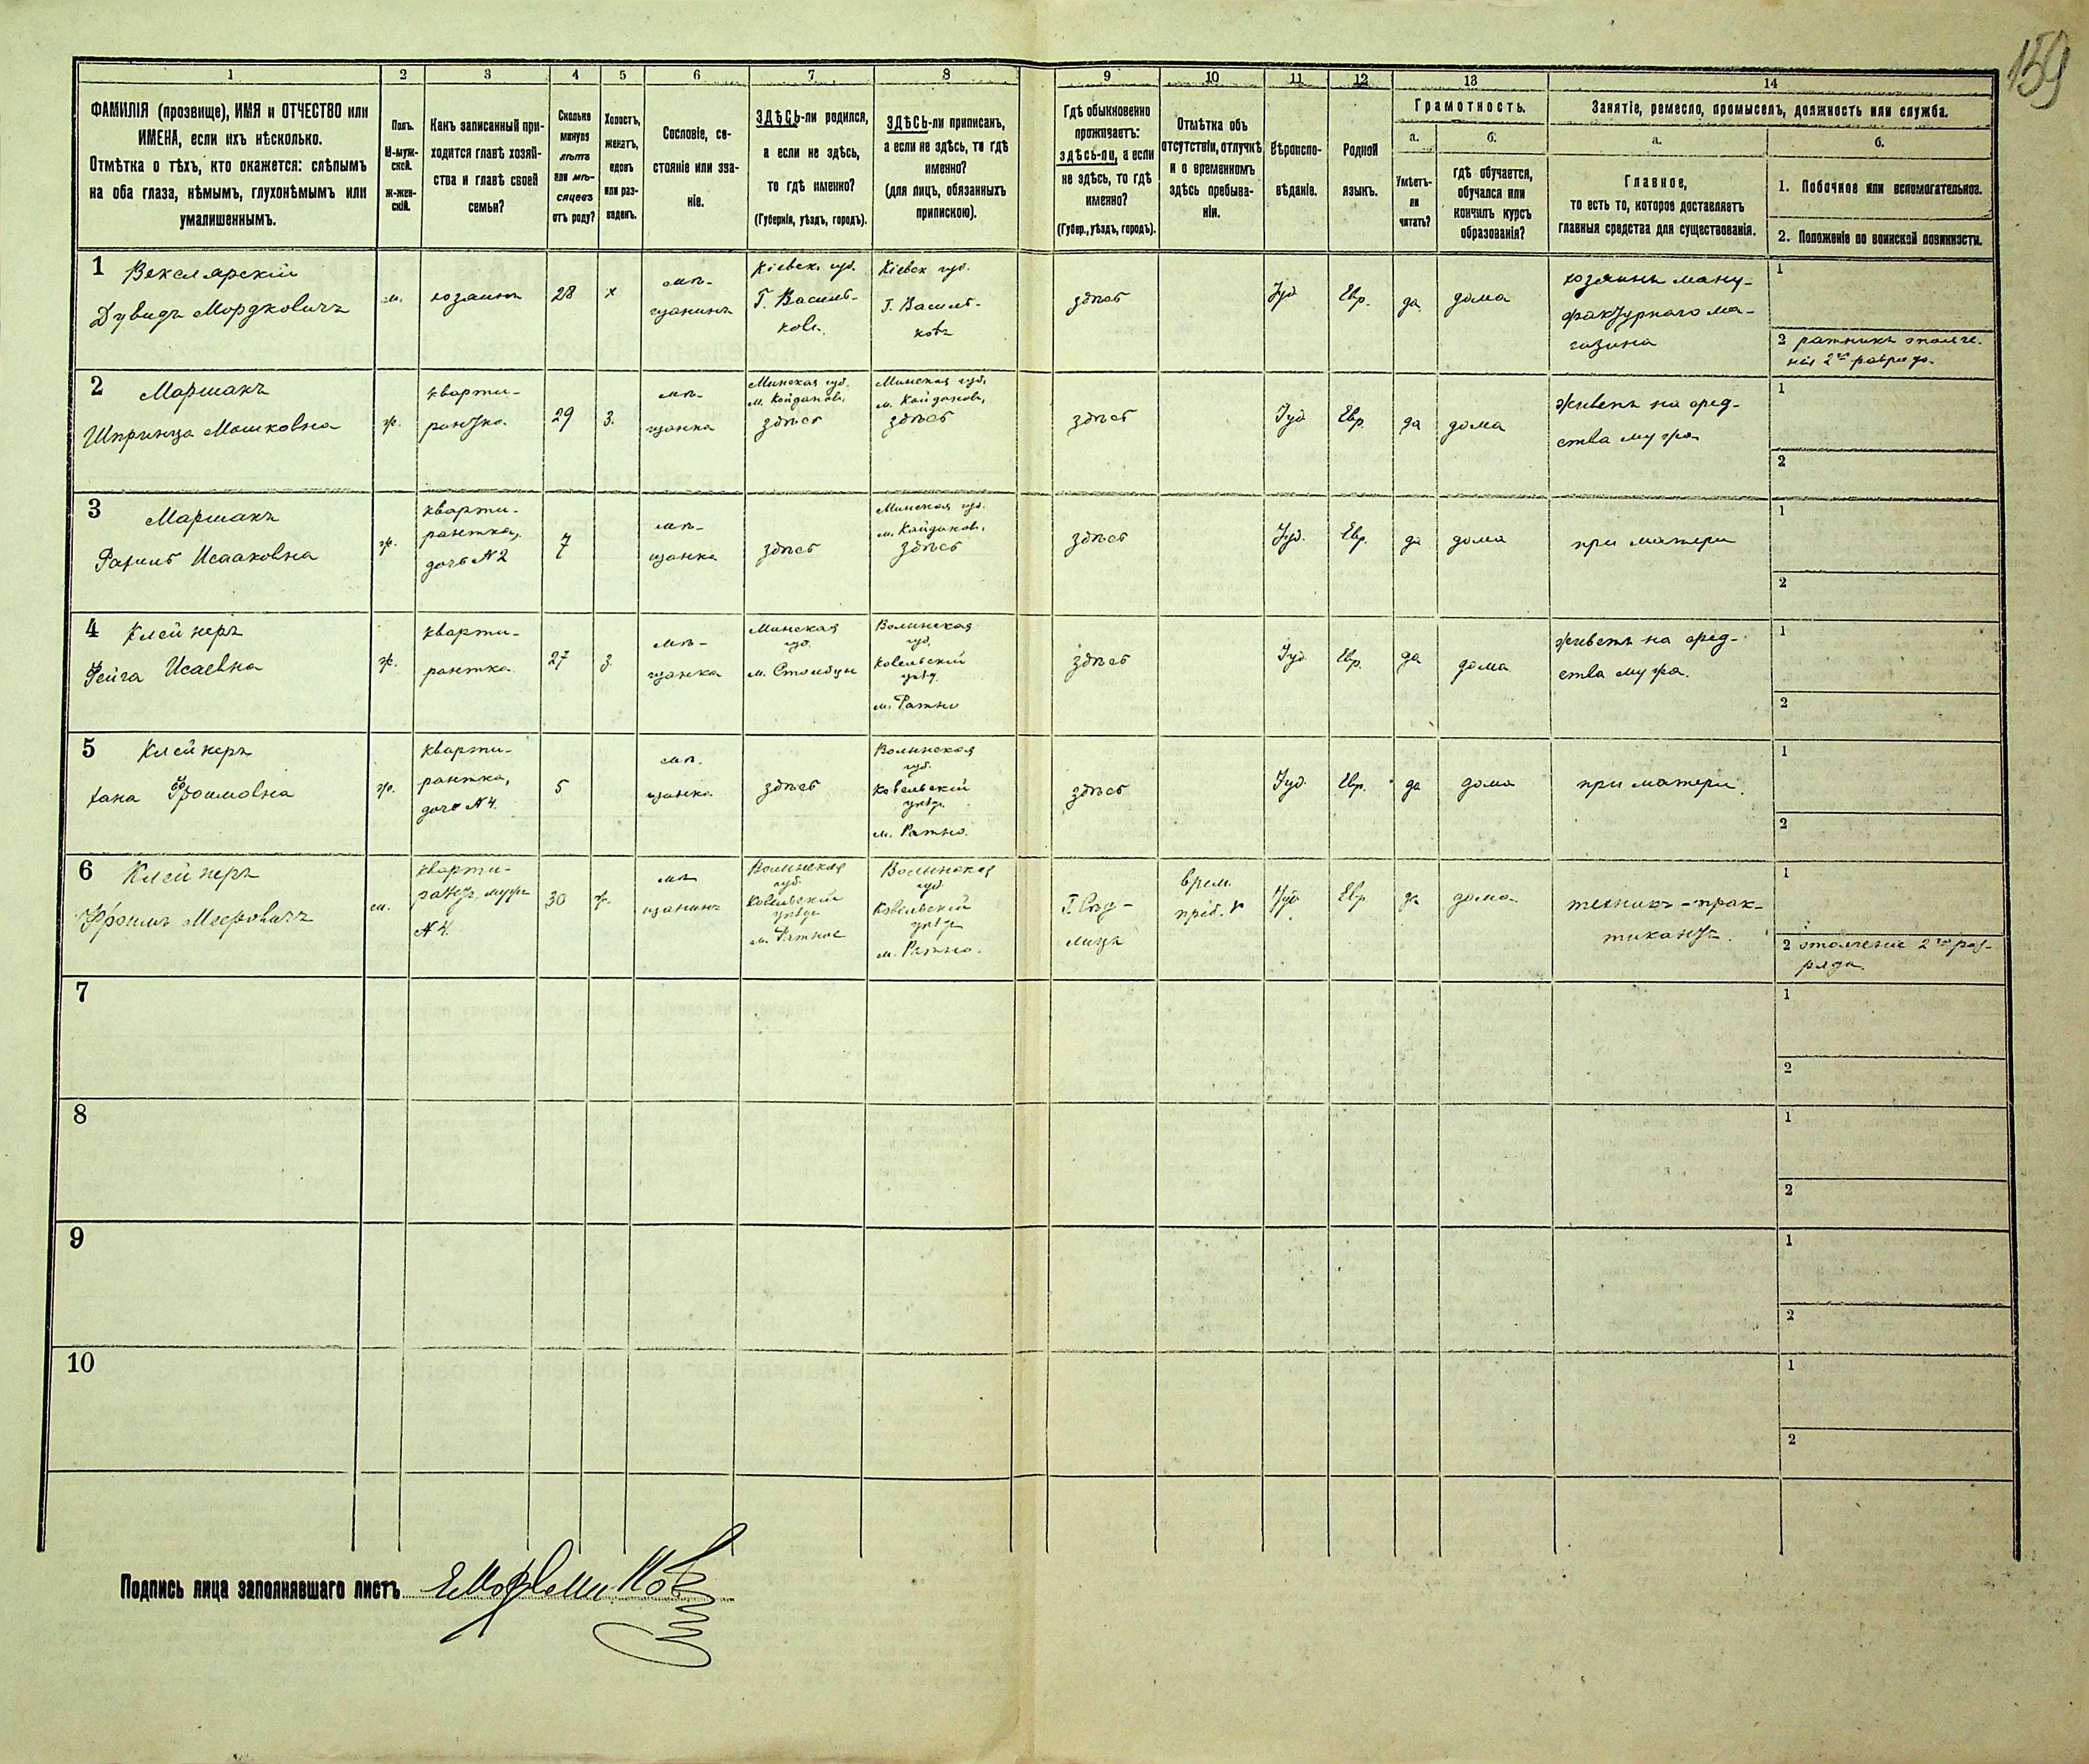 159
1 2 3 4 5 6 7 8 9 10 11 12 13 14
ФАМИЛІЯ (прозвище), ИМЯ и ОТЧЕСТВО или
ИМЕНА, если ихъ нѣсколько.
Отмѣтка о тѣхъ, кто окажется: слѣпымъ
на оба глаза, нѣмымъ, глухонѣмымъ или
умалишеннымъ.
Полъ.
М-муж-
ской.
Ж-жен-
скій.
Какъ записанный при-
ходится главѣ хозяй-
ства и главѣ своей
семьи?
Сколько
минуло
лѣтъ
или мѣ-
сяцевъ
отъ роду?
Холостъ,
женатъ,
вдовъ
или раз-
веденъ.
Сословіе, со-
стояніе или зва-
ніе.
ЗДѢСЬ-ли родился,
а если не здѣсь,
то гдѣ именно?
(Губернія, уѣздъ, городъ).
ЗДѢСЬ-ли приписанъ,
а если не здѣсь, то гдѣ
именно?
(для лицъ, обязанныхъ
припискою).
Гдѣ обыкновенно
проживаетъ:
здѣсь-ли, а если
не здѣсь, то гдѣ
именно?
(Губер., уѣздъ, городъ).
Отмѣтка объ
отсутствіи, отлучкѣ
и о временномъ
здѣсь пребыва-
ніи.
Вѣроиспо-
вѣданіе.
Родной
языкъ.
Грамотность.
а.
Умѣетъ-
ли
читать?
б.
гдѣ обучается,
обучался или
кончилъ курсъ
образованія?
Занятіе, ремесло, промыселъ, должность или служба.
а.
Главное,
то есть то, которое доставляетъ
главныя средства для существованія.
б.
1. Побочное или вспомогательное.
2. Положеніе по воинской повинности.
1
Векслярскій
Дувидъ Мордковичъ
м.
хозяинъ
28
х
мѣ-
щанинъ
Кіевск. губ.
Г. Василь-
ковъ.
Кіевск губ.
Г. Василь-
ковъ
здѣсь
Іуд
Евр.
да
дома
хозяинъ ману-
фактурнаго ма-
газина
1
2 ратникъ ополче-
нія 2го разряда.
2
Маршакъ
Шпринца Мошковна
ж.
кварти-
рантка.
29
з.
мѣ-
щанка
Минская губ.
м. Койдановъ,
здѣсь
Минская губ,
м. Койдановъ,
здѣсь
здѣсь
Іуд
Евр.
да
дома
живетъ на сред-
ства мужа
1
2
3
Маршакъ
Рахиль Исааковна
ж.
кварти-
рантка,
дочь N 2
7
мѣ-
щанка
здѣсь
Минская губ.
м. Койдановъ,
здѣсь
здѣсь
Іуд.
Евр.
да
дома
при матери
1
2
4
Клейнеръ
Фейга Исаевна
ж.
кварти-
рантка.
27
з.
мѣ-
щанка
Минская
губ.
м. Столбцы
Волынская
губ.
Ковельскій
уѣзд.
м. Ратно
здѣсь
Іуд
Евр.
да
дома
живетъ на сред-
ства мужа.
1
2
5
Клейнеръ
Хана Фроимовна
ж.
кварти-
рантка,
дочь N 4.
5
мѣ-
щанка
здѣсь
Волынская
губ.
Ковельскій
уѣзд.
м. Ратно.
здѣсь
Іуд
Евр.
да
дома
при матери.
1
2
6
Клейнеръ
Фроимъ Мееровичъ
м.
кварти-
рантъ, мужъ
N 4.
30
ж.
мѣ-
щанинъ
Волынская
губ.
Ковельскій
уѣзд.
м. Ратное
Волынская
губ.
Ковельскій
уѣзд.
м. Ратно.
врем.
преб.
Іуд
Евр.
да
дома
техникъ-прак-
тикантъ.
1
2 ополченіе 2го раз-
ряда.
7
1
2
8
1
2
9
1
2
10
1
2
Подпись лица заполнявшаго листъ